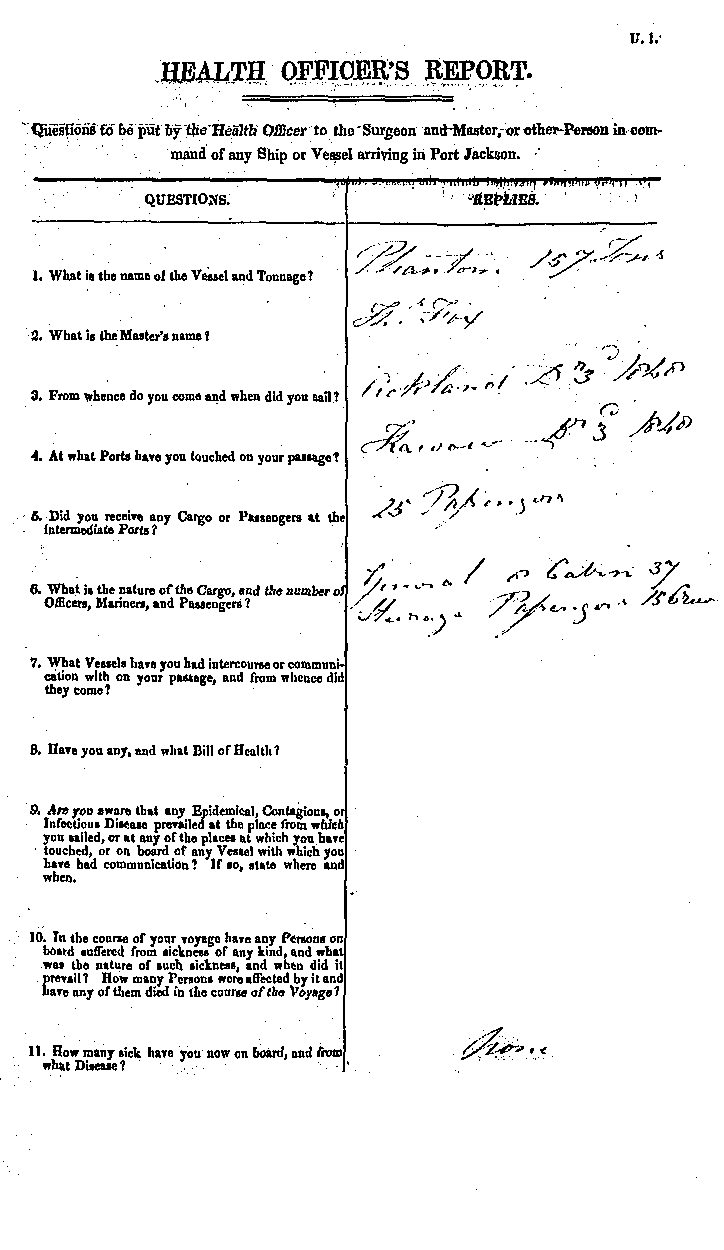 U. 1.
HEALTH OFFICER'S REPORT.
Questions to be put by the Health Officer to the Surgeon and Master, or other Person in com-
mand of any Ship or Vessel arriving in Port Jackson.
QUESTIONS.
REPLIES.
1. What is the name of the Vessel and Tonnage?
Phantom 157 Tons
2. What is the Master's name?
Ths Fox
3. From whence do you come and when did you sail?
3
4. At what Ports have you touched on your passage?
Kawau 3
5. Did you receive any Cargo or Passengers at the
Intermediate Ports?
25 Passengers
6. What is the nature of the Cargo, and the number of
Officers, Mariners, and Passengers?
General Cabin 37
Steerage Passengers 15 Crew
7. What Vessels have you had intercourse or communi-
cation with on your passage, and from whence did
they come?
8. Have you any, and what Bill of Health?
9. Are you aware that any Epidemical, Contagious, or
Infectious Disease prevailed at the place from which
you sailed, or at any of the places at which you have
touched, or on board of any Vessel with which you
have had communication? If so, state where and
when.
10. In the course of your voyage have any Persons on
board suffered from sickness of any kind, and what
was the nature of such sickness, and when did it
prevail? How many Persons were affected by it and
have any of them died in the course of the Voyage?
11. How many sick have you now on board, and from
what Disease?
None